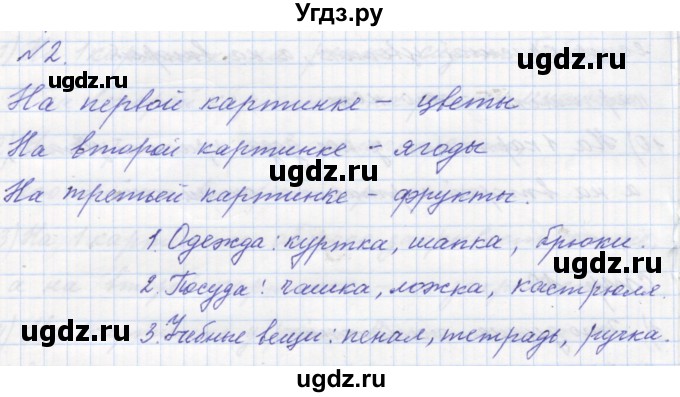 Угдз.ру
№2.
На первой картинке – цветы
На второй картинке – ягоды
На третьей картинке – фрукты.
1. Одежда: куртка, шапка, брюки.
2. Посуда: чашка, ложка, кастрюля.
3. Учебные вещи: пенал, тетрадь, ручка.
ugdz.ru
ugdz.ru
ugdz.ru
ugdz.ru
ugdz.ru
ugdz.ru
ugdz.ru
ugdz.ru
ugdz.ru